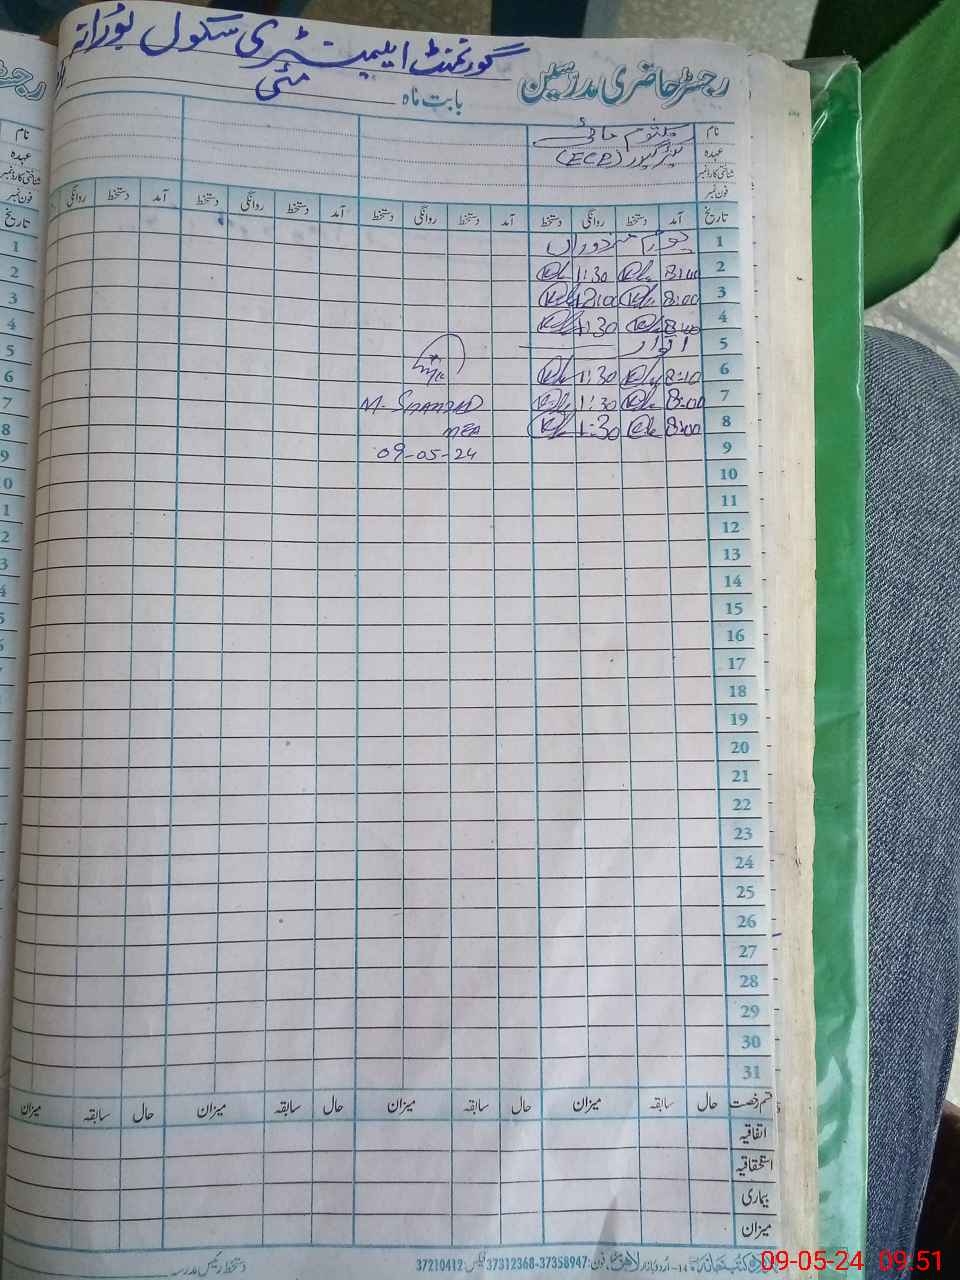 گورنمنٹ ایلیمنٹری سکول
رجسٹر حاضری مدرسین
بابت ماہ مئی
نام
عہدہ (ECE)
شناختی کارڈ نمبر
فون نمبر
تاریخ آمد دستخط روانگی دستخط آمد دستخط روانگی دستخط آمد دستخط روانگی دستخط آمد دستخط روانگی
1
2 1:30
3 8:00 12:00
4 1:30
5 اتوار
6 8:10 1:30
7 8:00 1:30
8 8:00 1:30
M. SHAHZAD
MEA
9 09-05-24
10
11
12
13
14
15
16
17
18
19
20
21
22
23
24
25
26
27
28
29
30
31
قسم رخصت حال سابقہ میزان حال سابقہ میزان حال سابقہ میزان حال سابقہ میزان
اتفاقیہ
استحقاقیہ
بیماری
میزان
دستخط رئیس مدرسہ
14-اردو بازار لاہور، فون: 37358947-37312368 فیکس: 37210412
09-05-24 09:51